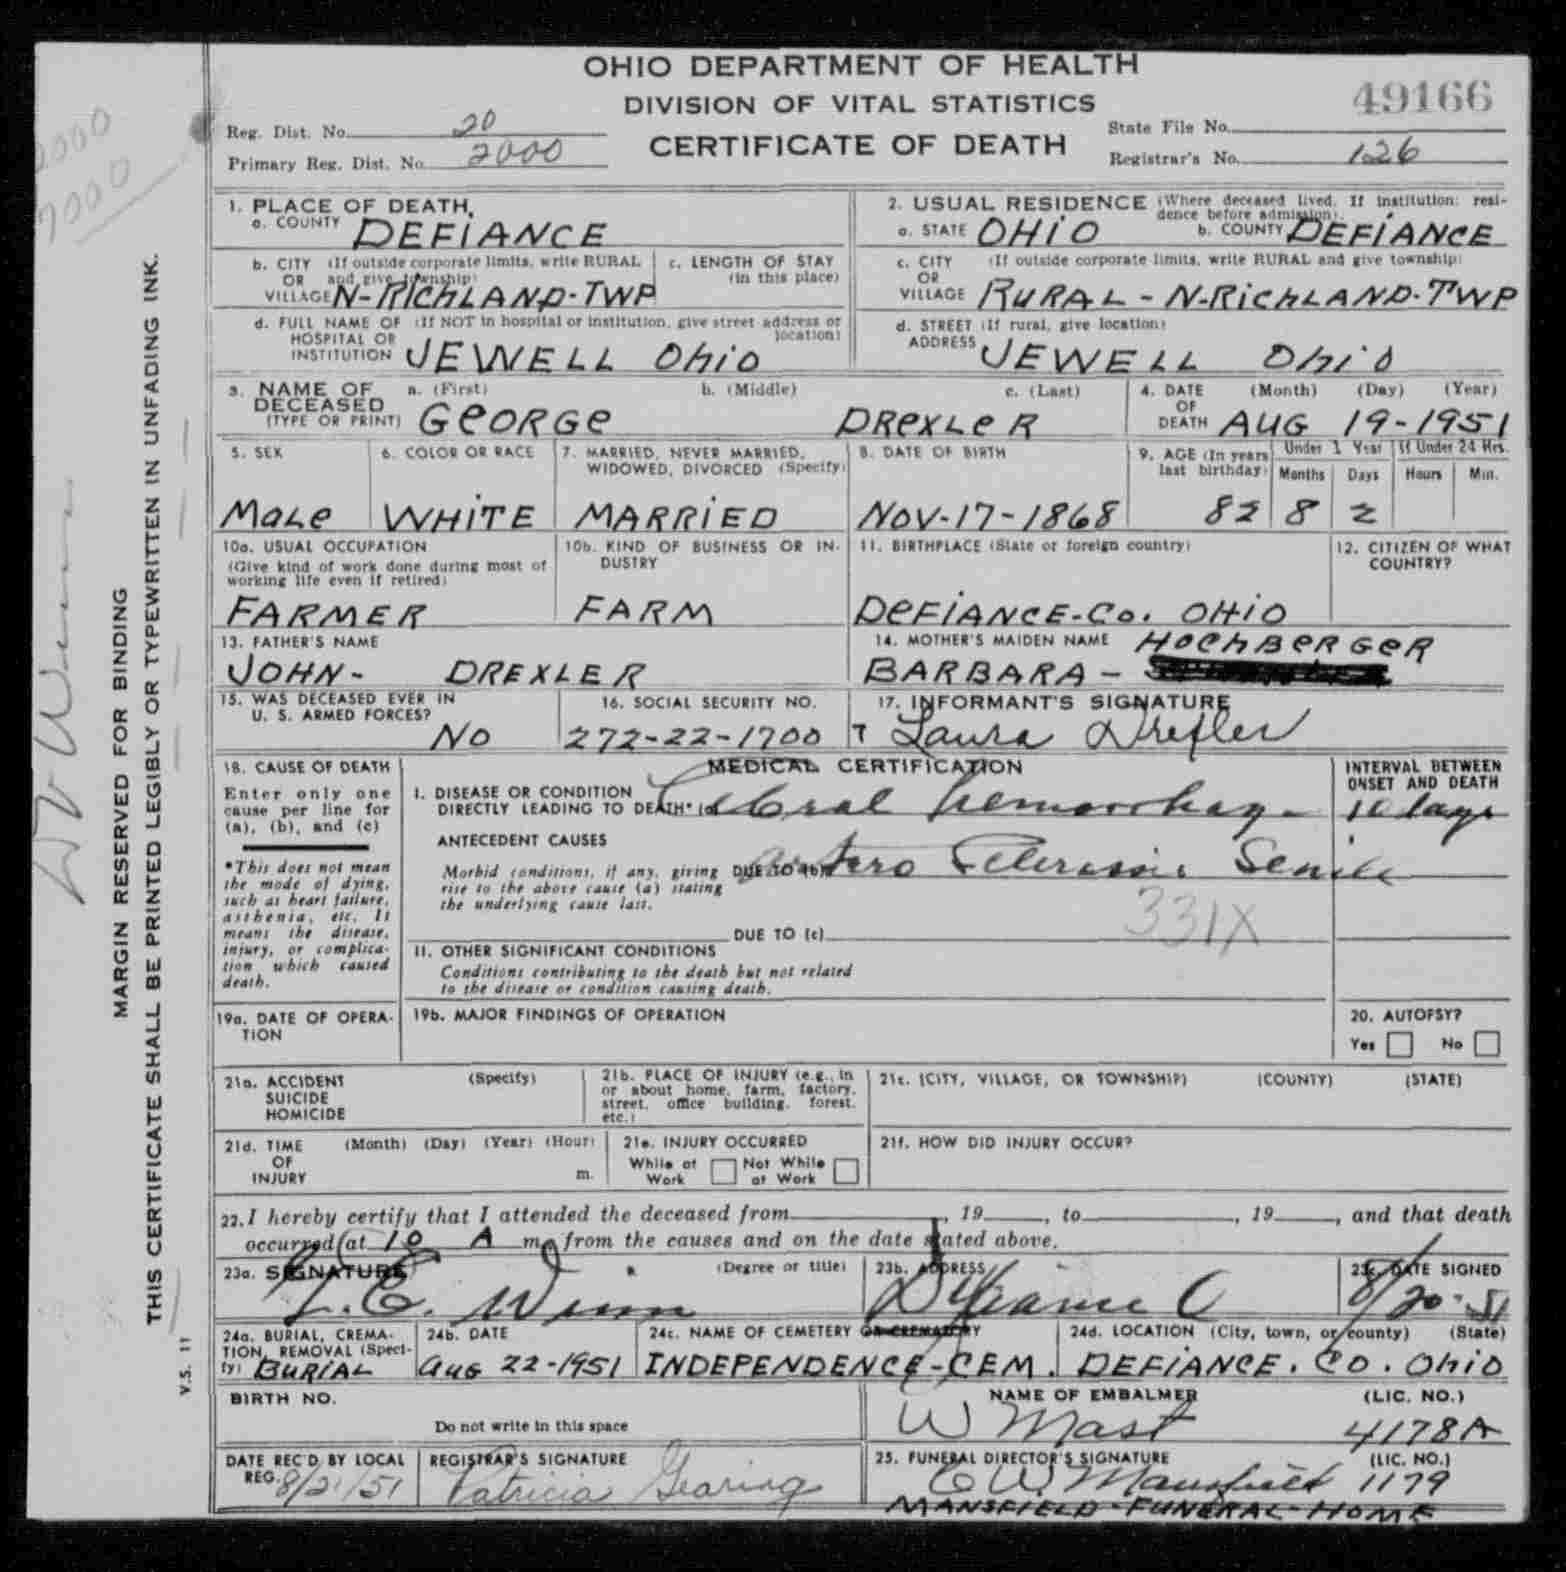 OHIO DEPARTMENT OF HEALTH
DIVISION OF VITAL STATISTICS
CERTIFICATE OF DEATH
49166
Reg. Dist. No. 20
Primary Reg. Dist. No. 2000
State File No.
Registrar's No. 126
2000
7000
MARGIN RESERVED FOR BINDING
THIS CERTIFICATE SHALL BE PRINTED LEGIBLY OR TYPEWRITTEN IN UNFADING INK.
V.S. 11
1. PLACE OF DEATH,
a. COUNTY DEFIANCE
b. CITY (If outside corporate limits, write RURAL
OR and give township)
VILLAGE N-RICHLAND-TWP
c. LENGTH OF STAY
(in this place)
d. FULL NAME OF (If NOT in hospital or institution, give street address or
HOSPITAL OR location)
INSTITUTION JEWELL Ohio
2. USUAL RESIDENCE (Where deceased lived. If institution: resi-
dence before admission).
a. STATE OHIO b. COUNTY DEFIANCE
c. CITY (If outside corporate limits, write RURAL and give township)
OR
VILLAGE RURAL - N-RICHLAND-TWP
d. STREET (If rural, give location)
ADDRESS JEWELL Ohio
3. NAME OF a. (First) b. (Middle) c. (Last)
DECEASED
(TYPE OR PRINT) GEORGE DREXLER
4. DATE (Month) (Day) (Year)
OF
DEATH AUG 19-1951
5. SEX
Male
6. COLOR OR RACE
WHITE
7. MARRIED, NEVER MARRIED,
WIDOWED, DIVORCED (Specify)
MARRIED
8. DATE OF BIRTH
Nov-17-1868
9. AGE (In years
last birthday)
82
Under 1 Year
Months Days
8 2
If Under 24 Hrs.
Hours Min.
10a. USUAL OCCUPATION
(Give kind of work done during most of
working life even if retired)
FARMER
10b. KIND OF BUSINESS OR IN-
DUSTRY
FARM
11. BIRTHPLACE (State or foreign country)
DEFIANCE-Co. OHIO
12. CITIZEN OF WHAT
COUNTRY?
13. FATHER'S NAME
JOHN- DREXLER
14. MOTHER'S MAIDEN NAME HOCHBERGER
BARBARA -
15. WAS DECEASED EVER IN
U. S. ARMED FORCES?
No
16. SOCIAL SECURITY NO.
272-22-1700
17. INFORMANT'S SIGNATURE
Laura Drexler
18. CAUSE OF DEATH
Enter only one
cause per line for
(a), (b), and (c)
*This does not mean
the mode of dying,
such as heart failure,
asthenia, etc. It
means the disease,
injury, or complica-
tion which caused
death.
MEDICAL CERTIFICATION
I. DISEASE OR CONDITION
DIRECTLY LEADING TO DEATH* (a) Cerebral hemorrhage
ANTECEDENT CAUSES
Morbid conditions, if any, giving DUE TO (b) Artero Sclerosis Senile
rise to the above cause (a) stating
the underlying cause last.
331X
DUE TO (c)
II. OTHER SIGNIFICANT CONDITIONS
Conditions contributing to the death but not related
to the disease or condition causing death.
INTERVAL BETWEEN
ONSET AND DEATH
10 days
19a. DATE OF OPERA-
TION
19b. MAJOR FINDINGS OF OPERATION
20. AUTOPSY?
Yes No
21a. ACCIDENT (Specify)
SUICIDE
HOMICIDE
21b. PLACE OF INJURY (e.g., in
or about home, farm, factory,
street, office building, forest,
etc.)
21c. (CITY, VILLAGE, OR TOWNSHIP) (COUNTY) (STATE)
21d. TIME (Month) (Day) (Year) (Hour)
OF
INJURY m.
21e. INJURY OCCURRED
While at Not While
Work at Work
21f. HOW DID INJURY OCCUR?
22. I hereby certify that I attended the deceased from , 19 , to , 19 , and that death
occurred at 10 A m., from the causes and on the date stated above.
23a. SIGNATURE (Degree or title)
23b. ADDRESS
Defiance O
23c. DATE SIGNED
8/20-51
24a. BURIAL, CREMA-
TION, REMOVAL (Speci-
fy) BURIAL
24b. DATE
Aug 22-1951
24c. NAME OF CEMETERY OR CREMATORY
INDEPENDENCE-CEM.
24d. LOCATION (City, town, or county) (State)
DEFIANCE. CO. Ohio
BIRTH NO.
Do not write in this space
NAME OF EMBALMER (LIC. NO.)
W Mast 4178A
DATE REC'D BY LOCAL
REG. 8/21/51
REGISTRAR'S SIGNATURE
Patricia Gearing
25. FUNERAL DIRECTOR'S SIGNATURE (LIC. NO.)
C W Mansfield 1179
MANSFIELD-FUNERAL-HOME